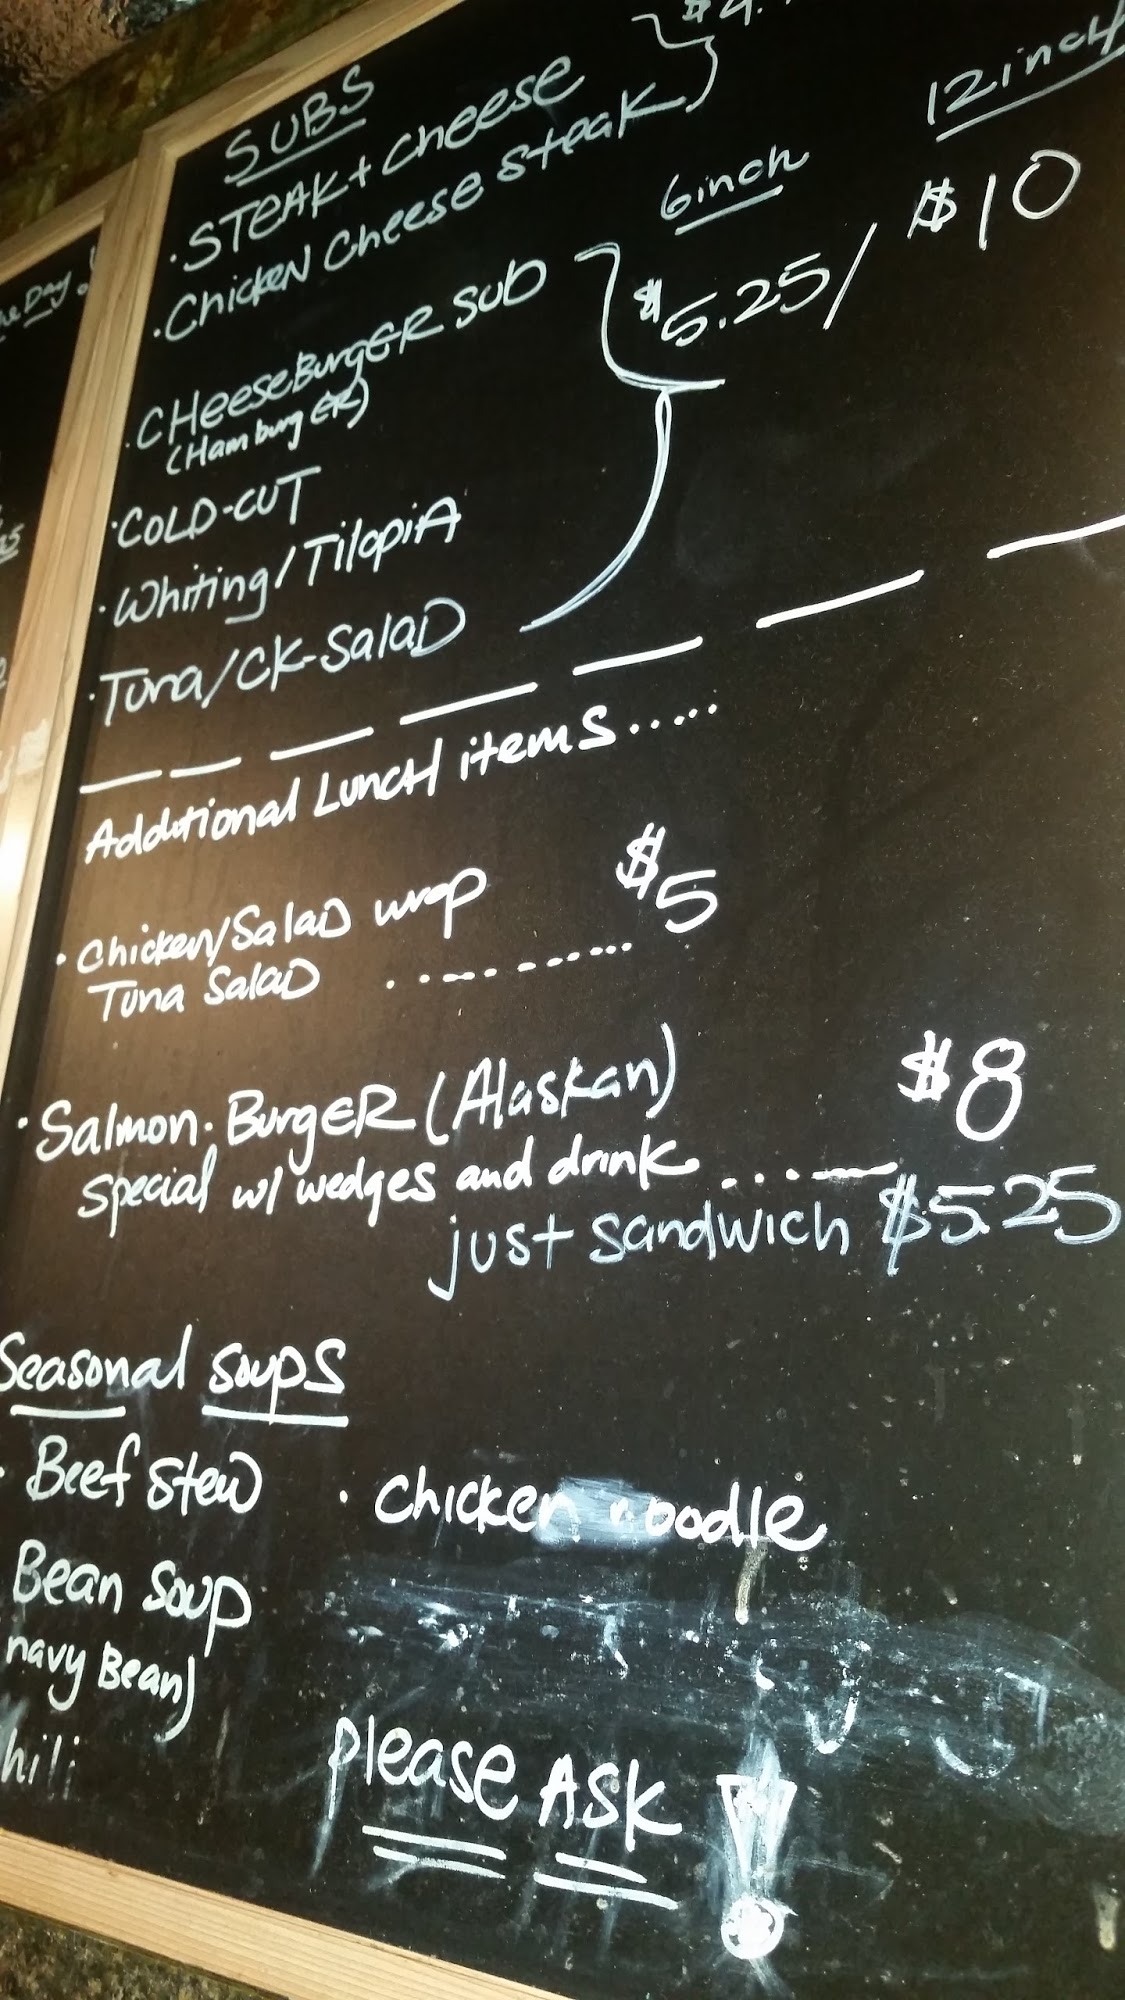 SUBS
12inch
· STEAK + Cheese
· Chicken Cheese steak
6inch
$5.25/ $10
· CHeeseBurgER SUB
(HamburgER)
· COLD-CUT
· Whiting/TilopiA
· Tuna/CK-SalaD
Additional LuncH items.....
· Chicken/SalaD wrap $5
Tuna SalaD
· Salmon. BurgER (Alaskan) $8
special w/ wedges and drink
just sandwich $5.25
Seasonal soups
· Beef stew · chicken noodle
Bean soup
navy Bean)
please ASK !